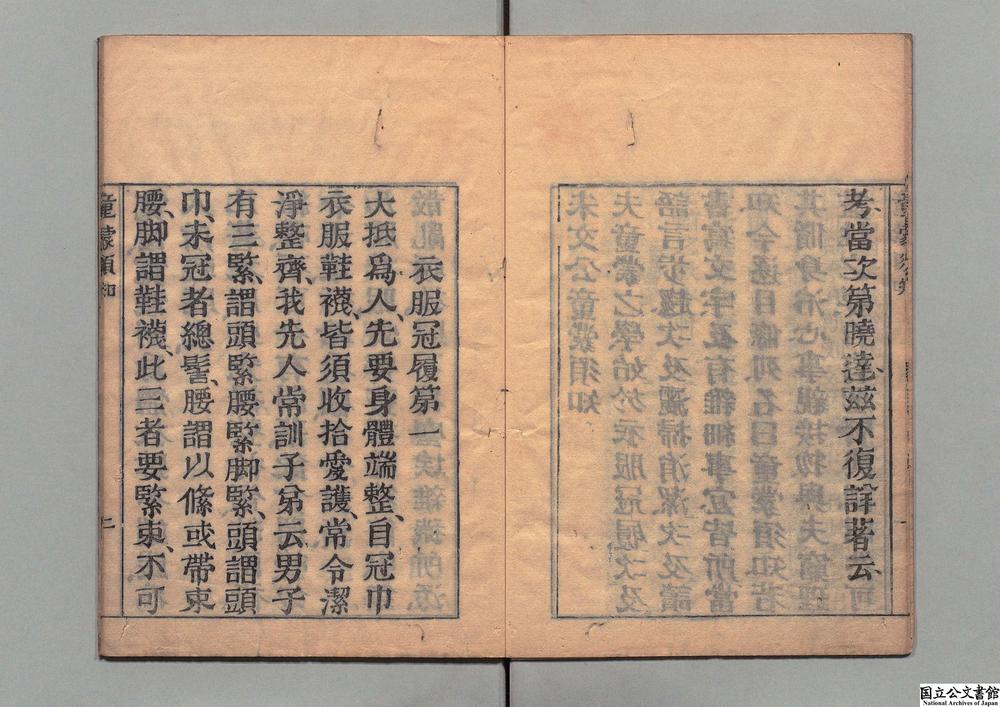 童蒙須知 一
考當次第曉達茲不復詳著云
衣服冠履第一
大抵爲人、先要身體端整、自冠巾
衣服鞋襪、皆須收拾愛護、常令潔
淨整齊、我先人常訓子弟云男子
有三緊、謂頭緊腰緊脚緊、頭謂頭
巾、未冠者總髻、腰謂以絛或帶束
腰、脚謂鞋襪、此三者要緊束、不可
童蒙須知 二
国立公文書館
National Archives of Japan